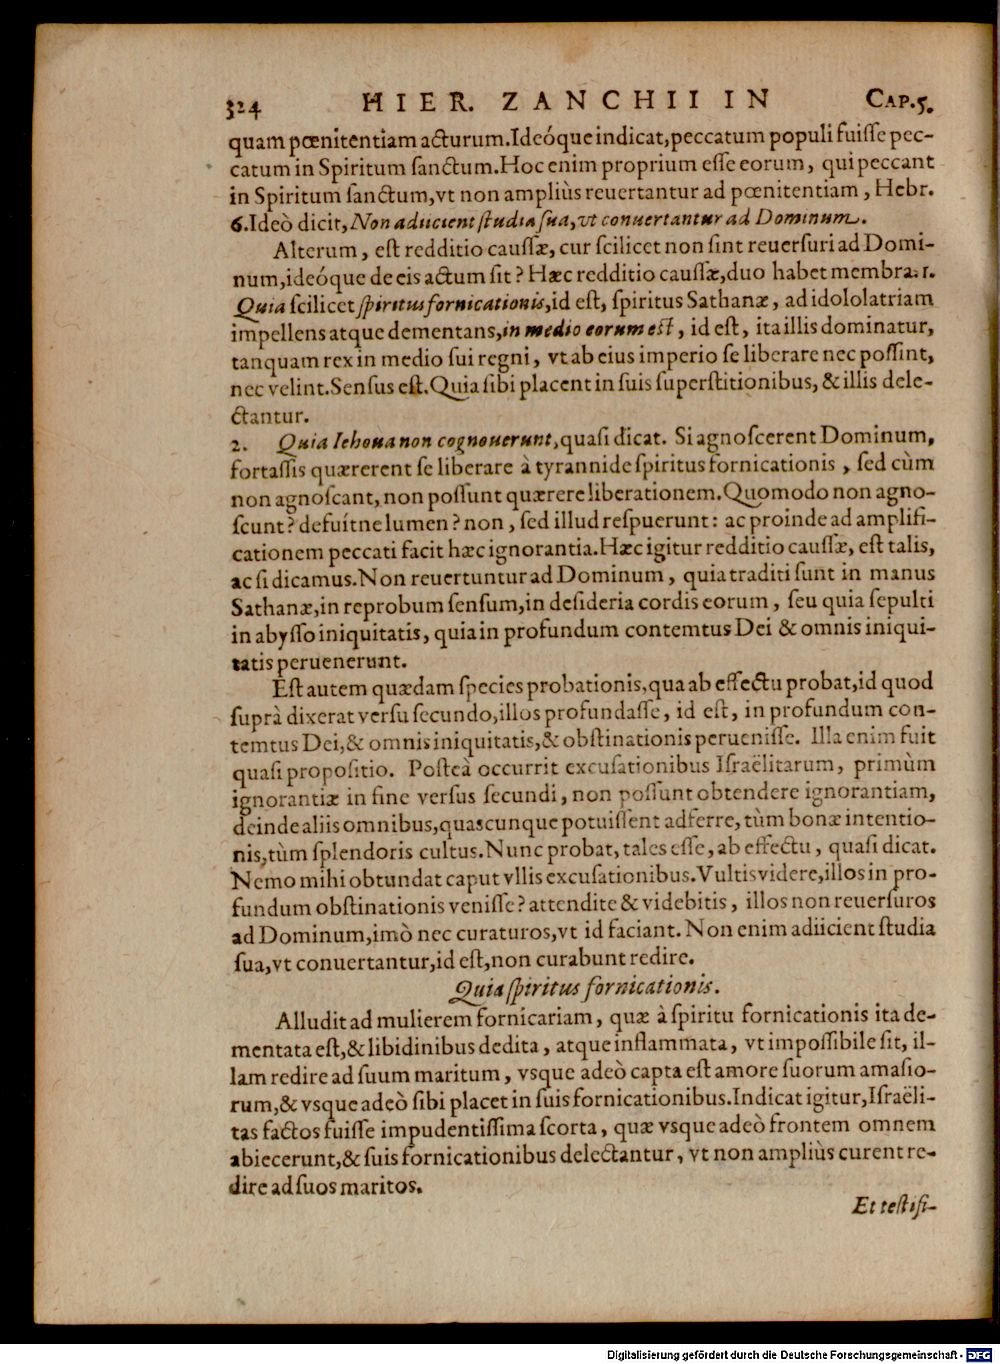 324 HIER. ZANCHII IN CAP.5.
quam pœnitentiam acturum.Ideóque indicat,peccatum populi fuiſſe pec-
catum in Spiritum ſanctum.Hoc enim proprium eſſe eorum, qui peccant
in Spiritum ſanctum,vt non ampliùs reuertantur ad pœnitentiam, Hebr.
6.Ideò dicit,Non adiicient ſtudia ſua,vt conuertantur ad Dominum.
Alterum, eſt redditio cauſſæ, cur ſcilicet non ſint reuerſuri ad Domi-
num,ideóque de eis actum ſit? Hæc redditio cauſſæ,duo habet membra.1.
Quia ſcilicet ſpiritus fornicationis,id eſt, ſpiritus Sathanæ, ad idololatriam
impellens atque dementans,in medio eorum eſt, id eſt, ita illis dominatur,
tanquam rex in medio ſui regni, vt ab eius imperio ſe liberare nec poſſint,
nec velint.Senſus eſt.Quia ſibi placent in ſuis ſuperſtitionibus, & illis dele-
ctantur.
2. Quia Iehoua non cognouerunt,quaſi dicat. Si agnoſcerent Dominum,
fortaſſis quærerent ſe liberare à tyrannide ſpiritus fornicationis, ſed cùm
non agnoſcant, non poſſunt quærere liberationem.Quomodo non agno-
ſcunt? defuítne lumen? non, ſed illud reſpuerunt: ac proinde ad amplifi-
cationem peccati facit hæc ignorantia.Hæc igitur redditio cauſſæ, eſt talis,
ac ſi dicamus.Non reuertuntur ad Dominum, quia traditi ſunt in manus
Sathanæ,in reprobum ſenſum,in deſideria cordis eorum, ſeu quia ſepulti
in abyſſo iniquitatis, quia in profundum contemtus Dei & omnis iniqui-
tatis peruenerunt.
Eſt autem quædam ſpecies probationis,qua ab effectu probat,id quod
ſuprà dixerat verſu ſecundo,illos profundaſſe, id eſt, in profundum con-
temtus Dei,& omnis iniquitatis,& obſtinationis perueniſſe. Illa enim fuit
quaſi propoſitio. Poſteà occurrit excuſationibus Iſraëlitarum, primùm
ignorantiæ in fine verſus ſecundi, non poſſunt obtendere ignorantiam,
deinde aliis omnibus,quascunque potuiſſent adferre, tùm bonæ intentio-
nis,tùm ſplendoris cultus.Nunc probat, tales eſſe, ab effectu, quaſi dicat.
Nemo mihi obtundat caput vllis excuſationibus.Vultis videre,illos in pro-
fundum obſtinationis veniſſe? attendite & videbitis, illos non reuerſuros
ad Dominum,imò nec curaturos,vt id faciant. Non enim adiicient ſtudia
ſua,vt conuertantur,id eſt,non curabunt redire.
Quia ſpiritus fornicationis.
Alludit ad mulierem fornicariam, quæ à ſpiritu fornicationis ita de-
mentata eſt,& libidinibus dedita, atque inflammata, vt impoſſibile ſit, il-
lam redire ad ſuum maritum, vsque adeò capta eſt amore ſuorum amaſio-
rum,& vsque adeò ſibi placet in ſuis fornicationibus.Indicat igitur,Iſraëli-
tas factos fuiſſe impudentiſſima ſcorta, quæ vsque adeò frontem omnem
abiecerunt,& ſuis fornicationibus delectantur, vt non ampliùs curent re-
dire ad ſuos maritos.
Et teſtifi-
Digitalisierung gefördert durch die Deutsche Forschungsgemeinschaft - DFG